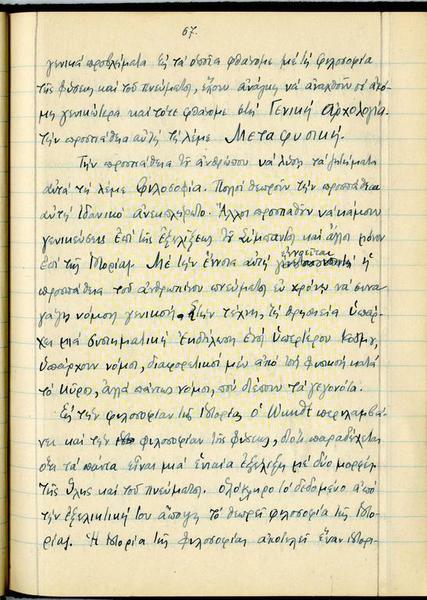 67.
γενικά προβλήματα εἰς τά ὁποῖα φθάνομε μέ τή φιλοσοφία
τῆς φύσεως καί τοῦ πνεύματος, ἔχουν ἀνάγκη νά ἀναχθοῦν σέ ἀκό-
μη γενικώτερα καί τότε φθάνομε στή Γενική Ἀρχολογία.
Τήν προσπάθεια αὐτή τή λέμε Μεταφυσική.
Τήν προσπάθεια τοῦ ἀνθρώπου νά λύση τά ζητήματα
αὐτά τή λέμε Φιλοσοφία. Πολλοί θεωροῦν τήν προσπάθεια
αὐτή ἰδανικό ἀνεκπλήρωτο. Ἄλλοι προσπαθοῦν νά κάμουν
γενικεύσεις ἐπί τῆς ἐξελίξεως τοῦ Σύμπαντος καί ἄλλοι μόνον
ἐπί τῆς Ἱστορίας. Μέ τήν ἔννοια αὐτή ἐννοεῖται ἡ
προσπάθεια τοῦ ἀνθρωπίνου πνεύματος ἐν χρόνῳ νά συνα
γάγη νόμους γενικούς. Στήν τέχνη, τή θρησκεία ὑπάρ-
χει μιά συστηματική ἐκδήλωση ἑνός ὑπερτέρου κόσμου,
ὑπάρχουν νόμοι, διαφορετικοί μέν ἀπό τή φυσική κατά
τό κῦρος, ἀλλά πάντως νόμοι, πού διέπουν τά γεγονότα.
Εἰς τήν φιλοσοφίαν τῆς ἱστορίας ὁ Wundt περιλαμβά-
νει καί τήν φιλοσοφίαν τῆς φύσεως, διότι παραδέχεται
ὅτι τά πάντα εἶναι μιά ἑνιαία ἐξέλιξη μέ δύο μορφές
τῆς ὕλης καί τοῦ πνεύματος. Ὁλόκληρο τό δεδομένο ἀπό
τήν ἐξελικτική του ἄποψη τό θεωρεῖ φιλοσοφία τῆς ἱστο-
ρίας. Ἡ ἱστορία τῆς φιλοσοφίας ἀποτελεῖ ἕναν ἱστορι-